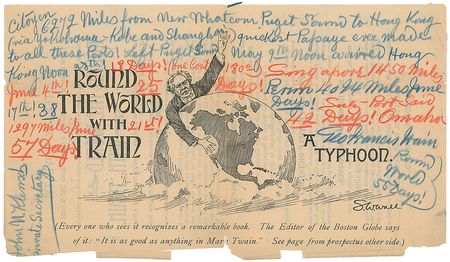 Citizen 6272 Miles from New Whatcom Puget Sound to Hong Kong
(via Yokohama - Kobe and Shanghai) quickest Passage ever made
to all these Ports! Left Puget Sound May 9th Noon arrived Hong
Kong Noon 18 Days! one Coat! 1800
June 4th! 25 Singapore 1450 Miles
17th! 38 4094 Miles June
1297 Miles June 21st! Days! Suez - Port Said
57 Days! 42 Days! Omaha
Geo Francis Train
Round
World
55 Days!
John W Private Secretary
ROUND
THE WORLD
WITH
TRAIN
A
TYPHOON.
(Every one who sees it recognizes a remarkable book. The Editor of the Boston Globe says
of it: "It is as good as anything in Mark Twain." See page from prospectus other side.)